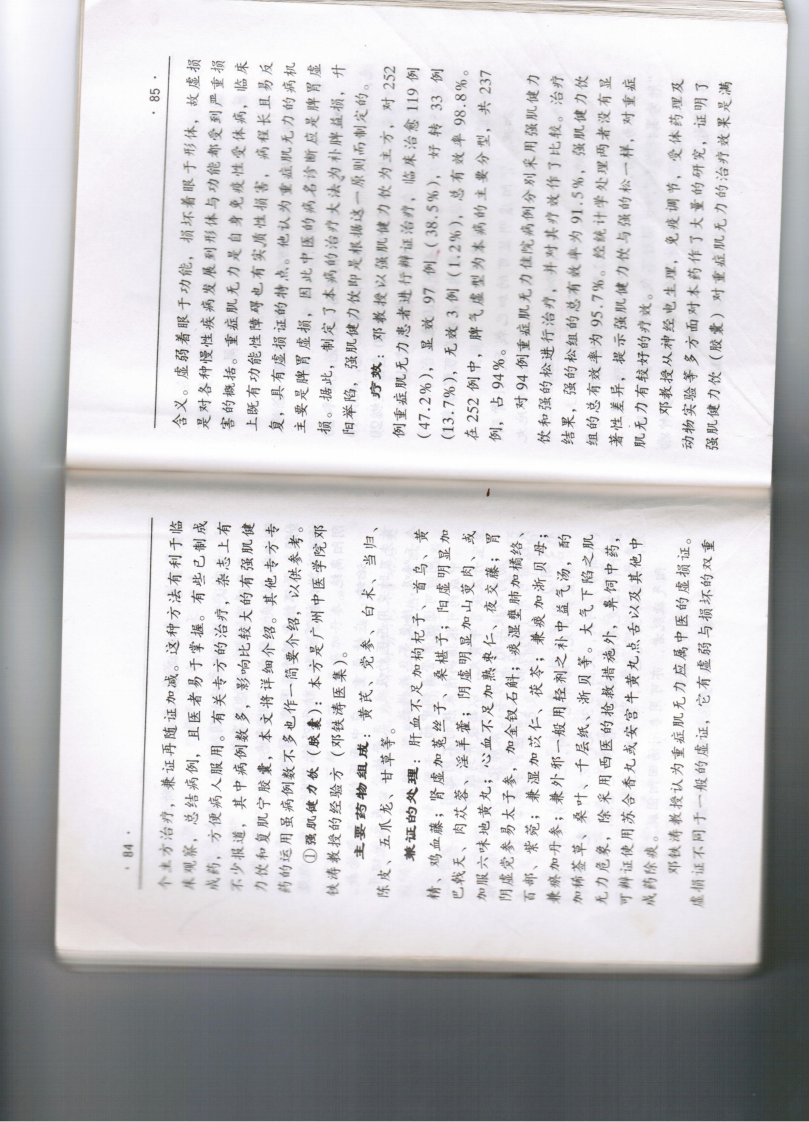 · 84 ·
个主方治疗，兼证再随证加减。这种方法有利于临
床观察，总结病例，且医者易于掌握。有些已制成
成药，方便病人服用。有关专方的治疗，杂志上有
不少报道，其中病例数多，影响比较大的有强肌健
力饮和复肌宁胶囊，本文将详细介绍。其他专方专
药的运用虽病例数不多也作一简要介绍，以供参考。
①强肌健力饮（胶囊）：本方是广州中医学院邓
铁涛教授的经验方（邓铁涛医集）。
主要药物组成：黄芪、党参、白术、当归、
陈皮、五爪龙、甘草等。
兼证的处理：肝血不足加枸杞子、首乌、黄
精、鸡血藤；肾虚加菟丝子、桑椹子；阳虚明显加
巴戟天、肉苁蓉、淫羊藿；阴虚明显加山萸肉、或
加服六味地黄丸；心血不足加熟枣仁、夜交藤；胃
阴虚党参易太子参，加金钗石斛；痰湿壅肺加橘络、
百部、紫菀；兼湿加苡仁、茯苓；兼痰加浙贝母；
兼瘀加丹参；兼外邪一般用轻剂之补中益气汤，酌
加豨莶草、桑叶、千层纸、浙贝等。大气下陷之肌
无力危象，除采用西医的抢救措施外，鼻饲中药，
可辨证使用苏合香丸或安宫牛黄丸点舌以及其他中
成药除痰。
邓铁涛教授认为重症肌无力应属中医的虚损证。
虚损证不同于一般的虚证，它有虚弱与损坏的双重
· 85 ·
含义。虚弱着眼于功能，损坏着眼于形体，故虚损
是对各种慢性疾病发展到形体与功能都受到严重损
害的概括。重症肌无力是自身免疫性受体病，临床
上既有功能性障碍也有实质性损害，病程长且易反
复，具有虚损证的特点。他认为重症肌无力的病机
主要是脾胃虚损，因此中医的病名诊断应是脾胃虚
损。据此，制定了本病的治疗大法为补脾益损，升
阳举陷，强肌健力饮即是根据这一原则而制定的。
疗效：邓教授以强肌健力饮为主方，对 252
例重症肌无力患者进行辨证治疗，临床治愈 119 例
(47.2%)，显效 97 例（38.5%），好转 33 例
(13.7%)，无效 3 例（1.2%），总有效率 98.8%。
在 252 例中，脾气虚型为本病的主要分型，共 237
例，占 94%。
对 94 例重症肌无力住院病例分别采用强肌健力
饮和强的松进行治疗，并对其疗效作了比较。治疗
结果，强的松组的总有效率为 91.5%，强肌健力饮
组的总有效率为 95.7%。经统计学处理两者没有显
著性差异，提示强肌健力饮与强的松一样，对重症
肌无力有较好的疗效。
邓教授从神经电生理，免疫调节，受体药理及
动物实验等多方面对本药作了大量的研究，证明了
强肌健力饮（胶囊）对重症肌无力的治疗效果是满